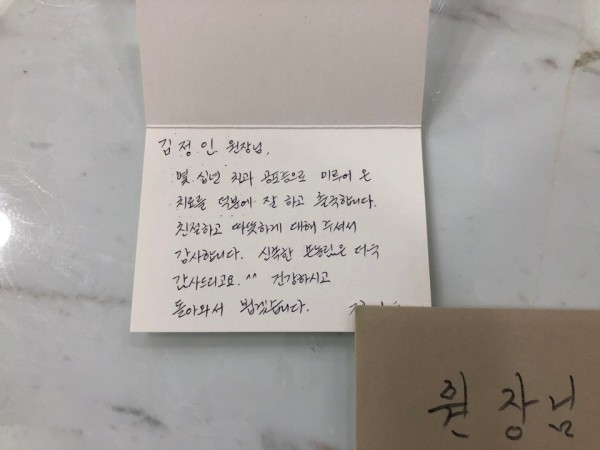 김정인 원장님,
몇 십년 치과 공포증으로 미루어 온
치료를 덕분에 잘 하고 출국합니다.
친절하고 따뜻하게 대해 주셔서
감사합니다. 신쭉한 더욱
감사드리고요. ^^ 건강하시고
돌아와서 뵙겠습니다.
원장님